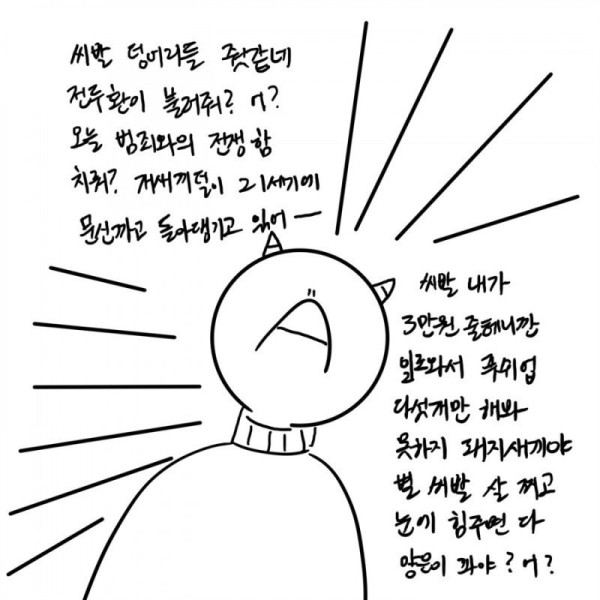 씨발 덩어리들 줫같네
전두환이 불러줘? 어?
오늘 범죄와의 전쟁 함
치뤄? 저새끼덜이 21세기에
문신까고 돌아댕기고 있어 ─
씨발 내가
3만원 줄테니깐
일로와서 푸쉬업
다섯개만 해봐
못하지 돼지새끼야
별 씨발 살 쪄고
눈에 힘주면 다
양은이 파야? 어?